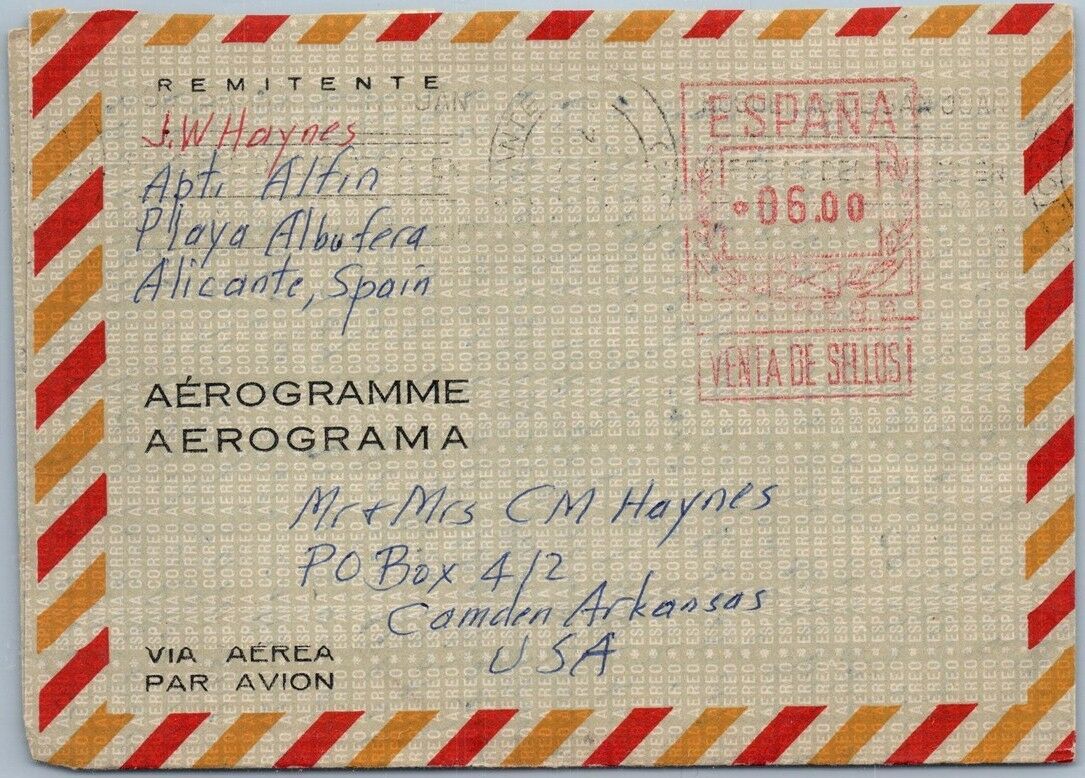 REMITENTE
J.W Haynes
Apti Alfin
Playa Albufera
Alicante, Spain
JAN
ESPAÑA
*06.00
VENTA DE SELLOS
AÉROGRAMME
AEROGRAMA
Mr + Mrs CM Haynes
PO Box 412
Camden Arkansas
USA
VIA AÉREA
PAR AVION